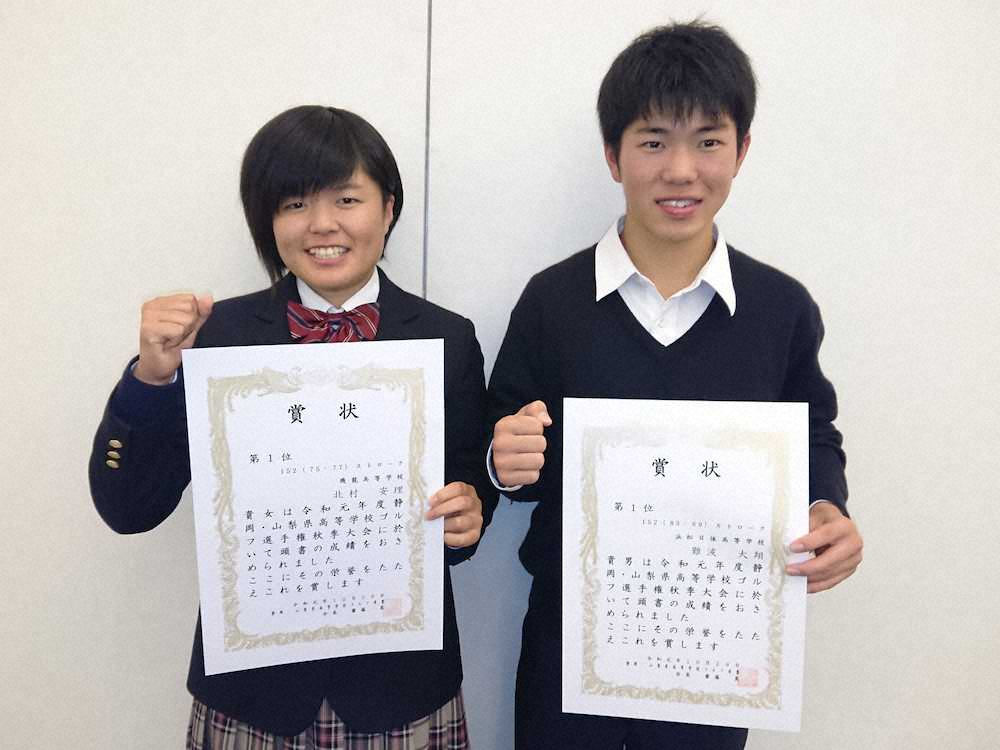 賞状
第1位
152(75・77)ストローク
高等学校
北村 安理
貴女は令和元年度静
岡・山梨県高等学校ゴル
フ選手権秋季大会に於
いて頭書の成績をおさ
められました
ここにその栄誉をたた
えこれを賞します
賞状
第1位
152(83・69)ストローク
浜松日体高等学校
難波 大翔
貴男は令和元年度静
岡・山梨県高等学校ゴル
フ選手権秋季大会に於
いて頭書の成績をおさ
められました
ここにその栄誉をたた
えこれを賞します